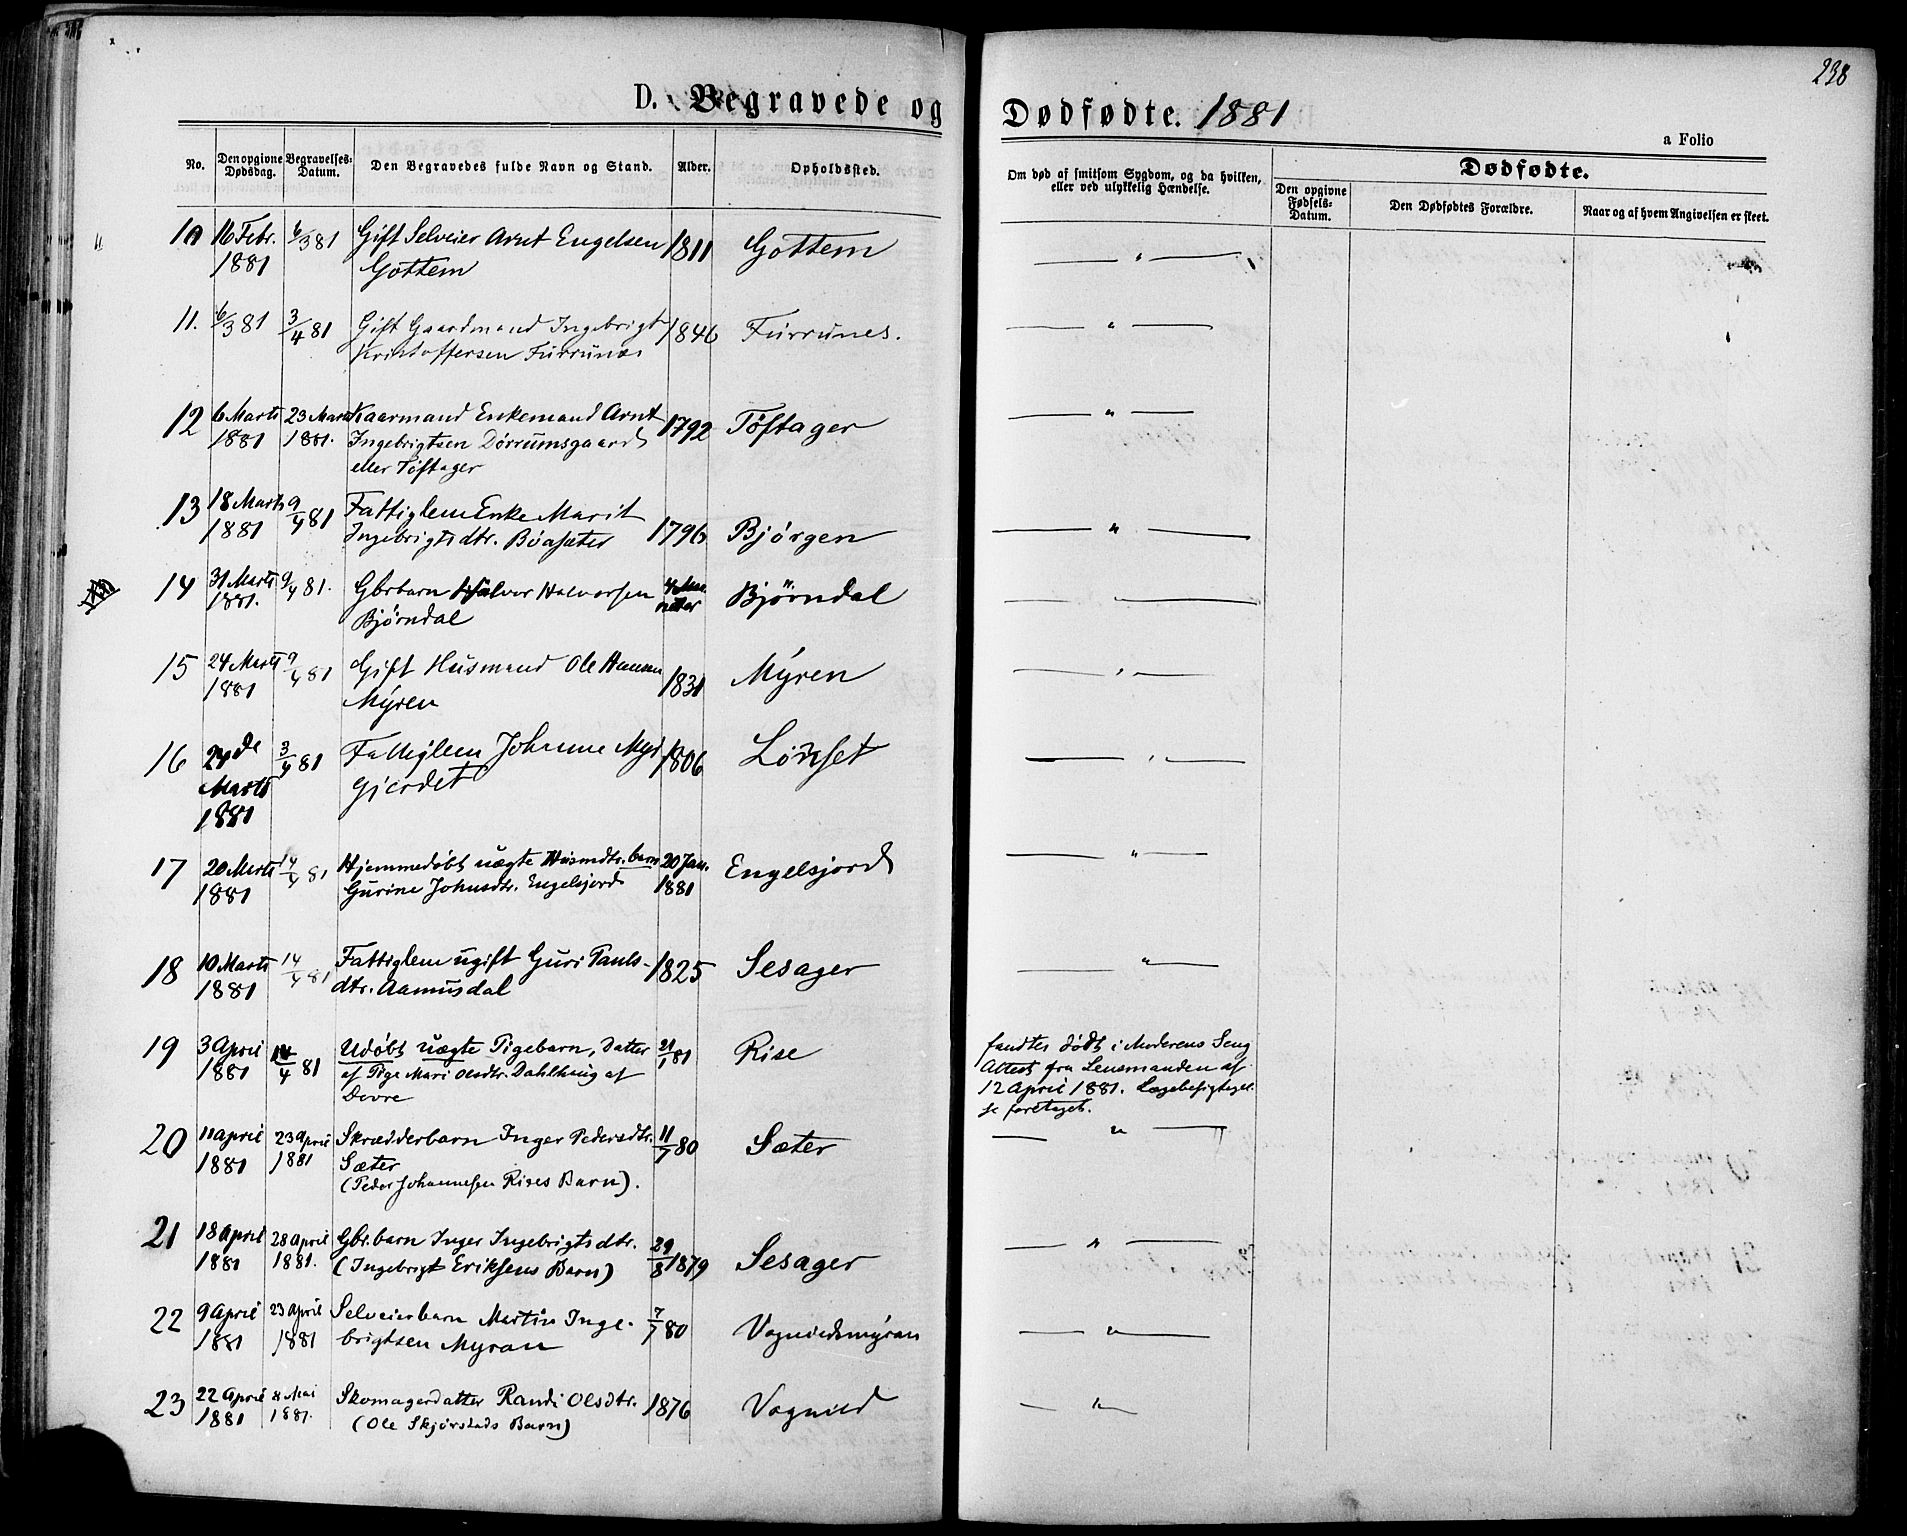 238
D. Begravede og Dødfødte. 1881
a Folio
No.
Den opgivne Dødsdag.
Begravelses-Datum.
Den Begravedes fulde Navn og Stand.
Alder.
Opholdssted.
Om død af smitsom Sygdom, og da hvilken,
eller ved ulykkelig Hændelse.
Dødfødte.
Den opgivne Fødsels-Datum.
Den Dødfødtes Forældre.
Naar og af hvem Angivelsen er skeet.
10 16 Febr. 6/3 81 Gift Selveier Arnt Engelsen 1811 Gottem — " —
1881 Gottem
11. 6/3 81 3/4 81 Gift Gaardmand Ingebrigt 1846 Furrunes. — " —
Kristoffersen Furrunes
12 6 Marts 23 Marts Kaarmand Enkemand Arnt 1792 Tøftager — " —
1881 1881. Ingebrigtsen Dørrumsgaard
eller Tøftager
13 18 Marts 9/4 81 Fattiglem Enke Marit 1796 Bjørgen — " —
1881 Ingebrigtsdtr. Bøasæter
14 31 Marts 9/4 81. Gbrbarn Halvor Halvorsen 4 Maa Bjørndal — " —
1881. Bjørndal neder
15 24 Marts 9/4 81 Gift Husmand Ole Hansen 1831 Myren — " —
1881 Myren
16 24de 3/4 81 Fattiglem Johanne Myr 1806 Lønset — " —
Marts gjerdet
1881
17 20 Marts 14/4 81 Hjemmedøbt uægte Husmdtr. barn 20 Jan. Engelsjord — " —
1881 Gurine Johnsdtr. Engelsjord 1881
18 10 Marts 14/4 81 Fattiglem ugift Guri Pauls- 1825 Sesager — " —
1881 dtr. Aamusdal
19 3 April 14/4 81 Udøbt uægte Pigebarn, Datter 21/1 81 Rise fandtes dødt i Moderens Seng
1881 af Pige Mari Olsdtr. Dahlhaug af Attest fra Lensmanden af
Dovre 12 April 1881. Lægebesigtigel-
se foretaget.
20 11 April 23 April Skrædderbarn Inger Pedersdtr. 11/7 80 Sæter — " —
1881 1881 Sæter
(Peder Johannesen Rises Barn).
21 18 April 28 April Gbr. barn Inger Ingebrigtsdtr. 29/8 1879 Sesager — " —
1881 1881. (Ingebrigt Eriksens Barn)
22 9 April 23 April Selveierbarn Martin Inge- 7/7 80 Vognildsmyran — " —
1881 1881 brigtsen Myran
23 22 April 8 Mai Skomagerdatter Randi Olsdtr. 1876 Vognild — " —
1881 1881. (Ole Skjørstads Barn)